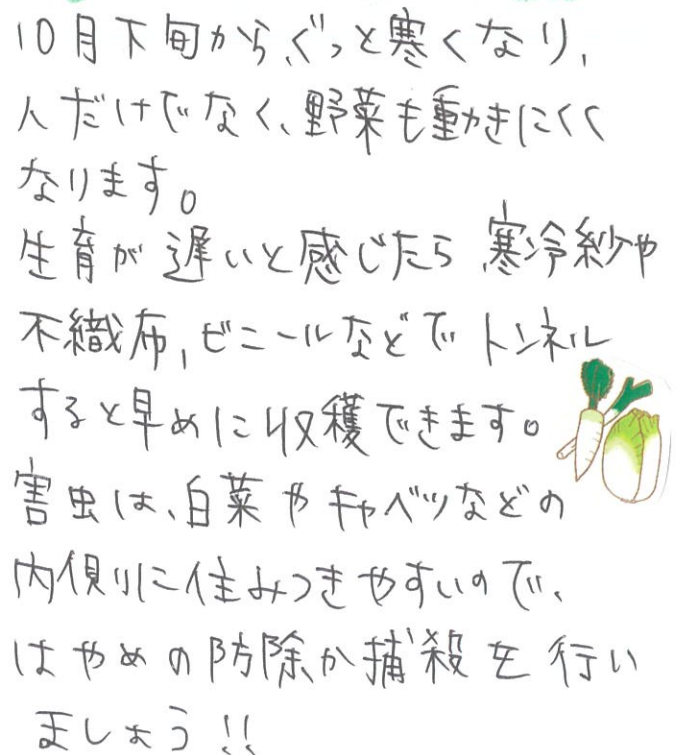 10月下旬から、ぐっと寒くなり、
人だけでなく、野菜も動きにくく
なります。
生育が遅いと感じたら、寒冷紗や
不織布，ビニールなどでトンネル
すると早めに収穫できます。
害虫は、白菜やキャベツなどの
内側に住みつきやすいので、
はやめの防除か捕殺を行い
ましょう!!